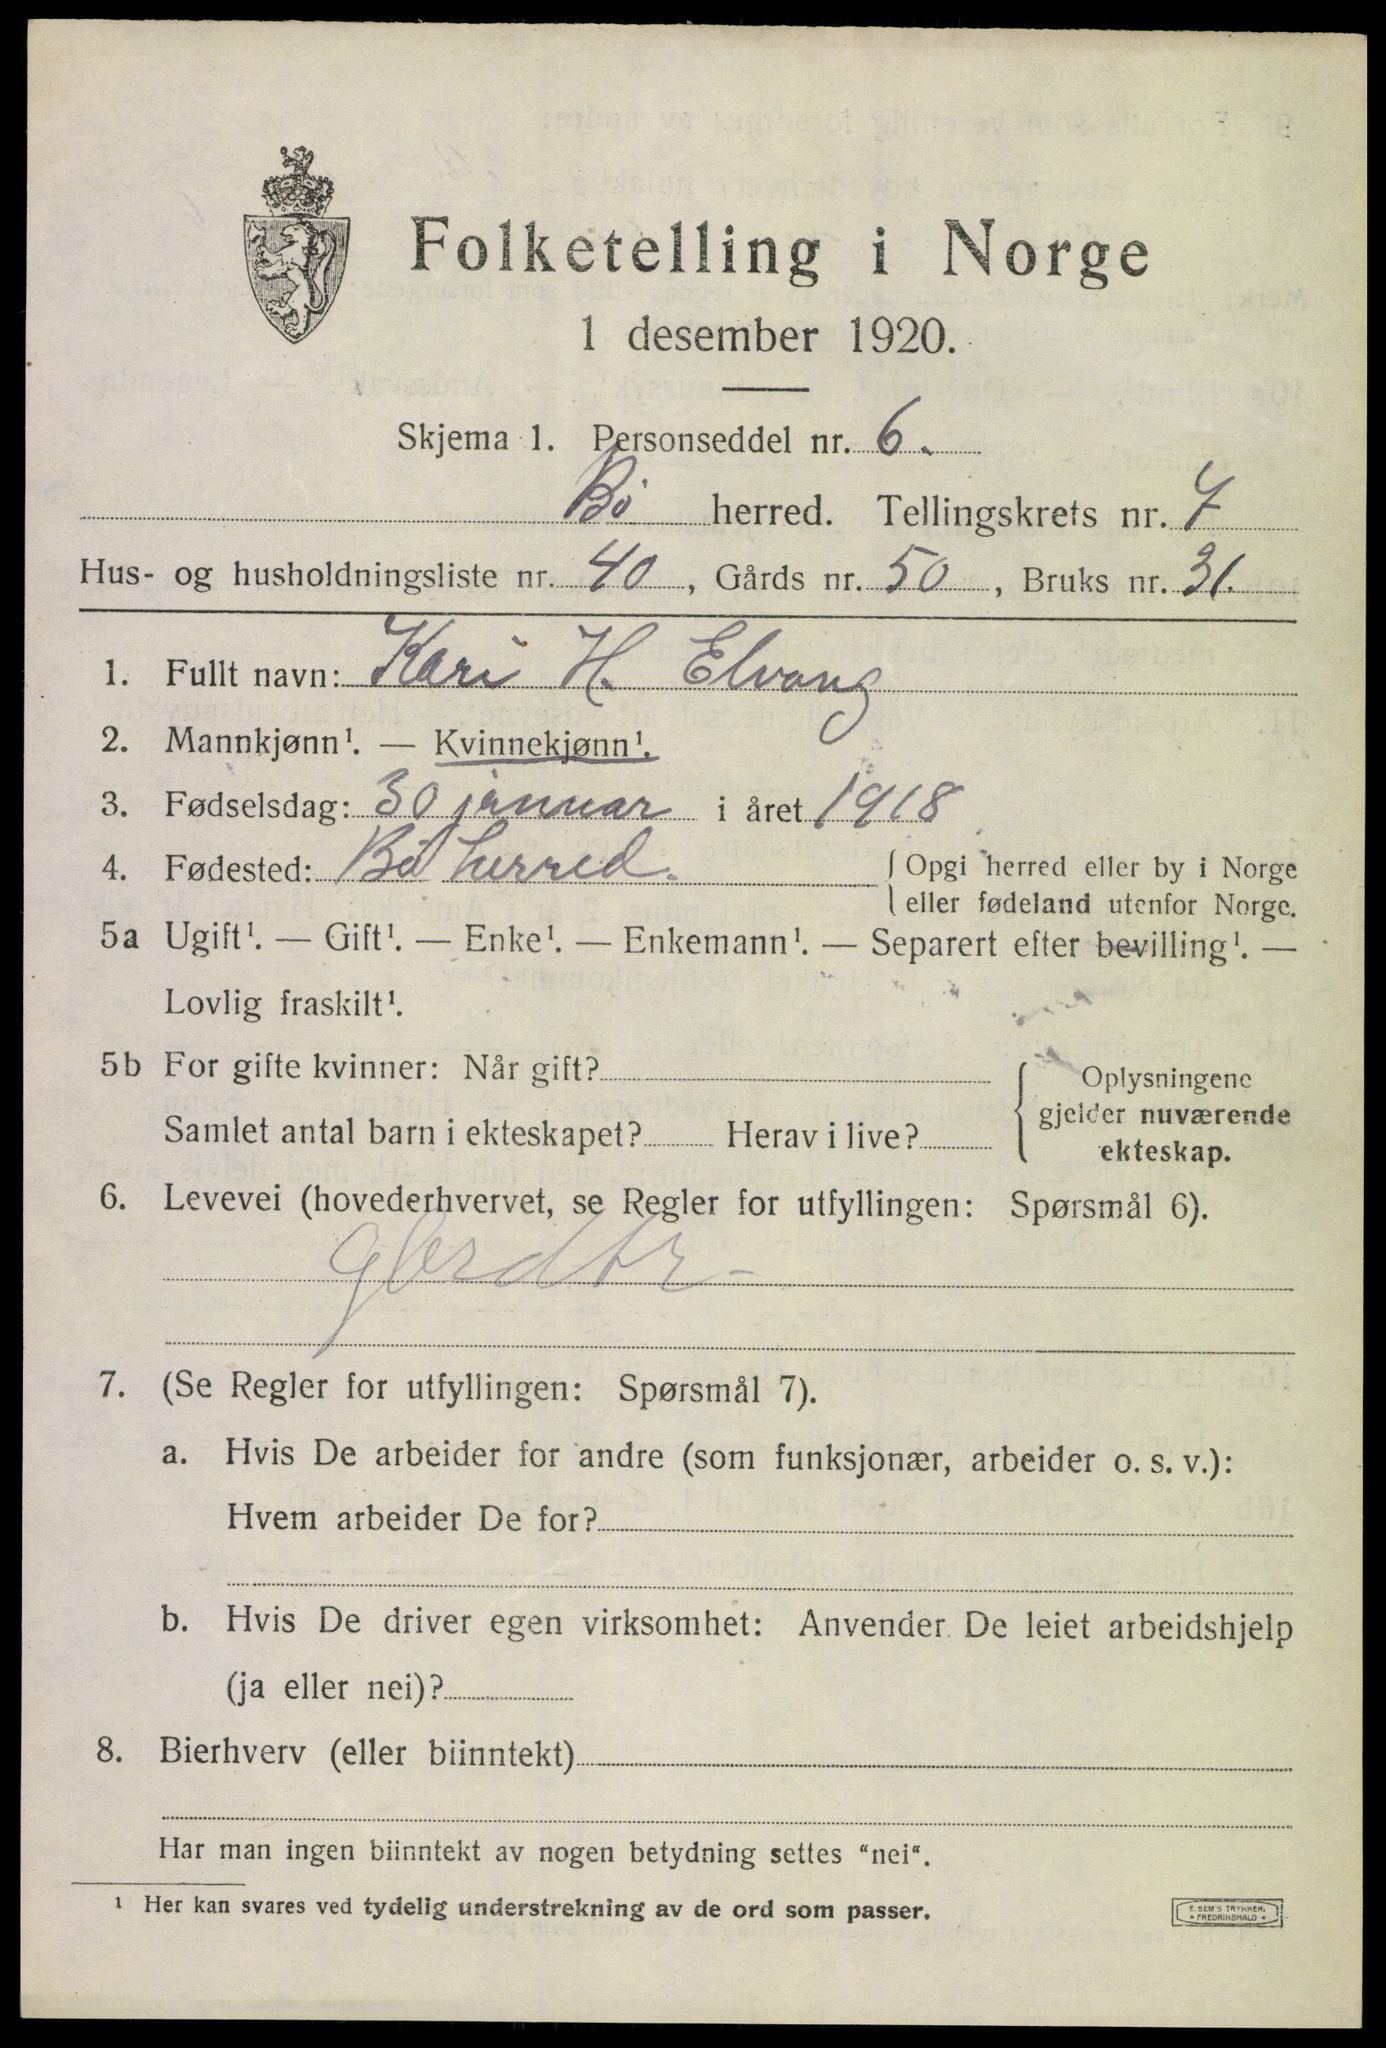 Folketelling i Norge
1 desember 1920.
Skjema 1. Personseddel nr. 6.
Bø herred. Tellingskrets nr. 7
Hus- og husholdningsliste nr. 40, Gårds nr. 50, Bruks nr. 31.
1. Fullt navn: Kari H. Elvang
2. Mannkjønn¹. — Kvinnekjønn¹.
3. Fødselsdag: 30 januar i året 1918
4. Fødested: Bø herred. Opgi herred eller by i Norge
eller fødeland utenfor Norge.
5a Ugift¹. — Gift¹. — Enke¹. — Enkemann¹. — Separert efter bevilling¹. —
Lovlig fraskilt¹.
5b For gifte kvinner: Når gift?
Samlet antal barn i ekteskapet? Herav i live?
Oplysningene
gjelder nuværende
ekteskap.
6. Levevei (hovederhvervet, se Regler for utfyllingen: Spørsmål 6).
7. (Se Regler for utfyllingen: Spørsmål 7).
a. Hvis De arbeider for andre (som funksjonær, arbeider o. s. v.):
Hvem arbeider De for?
b. Hvis De driver egen virksomhet: Anvender De leiet arbeidshjelp
(ja eller nei)?
8. Bierhverv (eller biinntekt)
Har man ingen biinntekt av nogen betydning settes "nei".
¹ Her kan svares ved tydelig understrekning av de ord som passer.
E. SEM'S TRYKKERI
• FREDRIKSHALD •